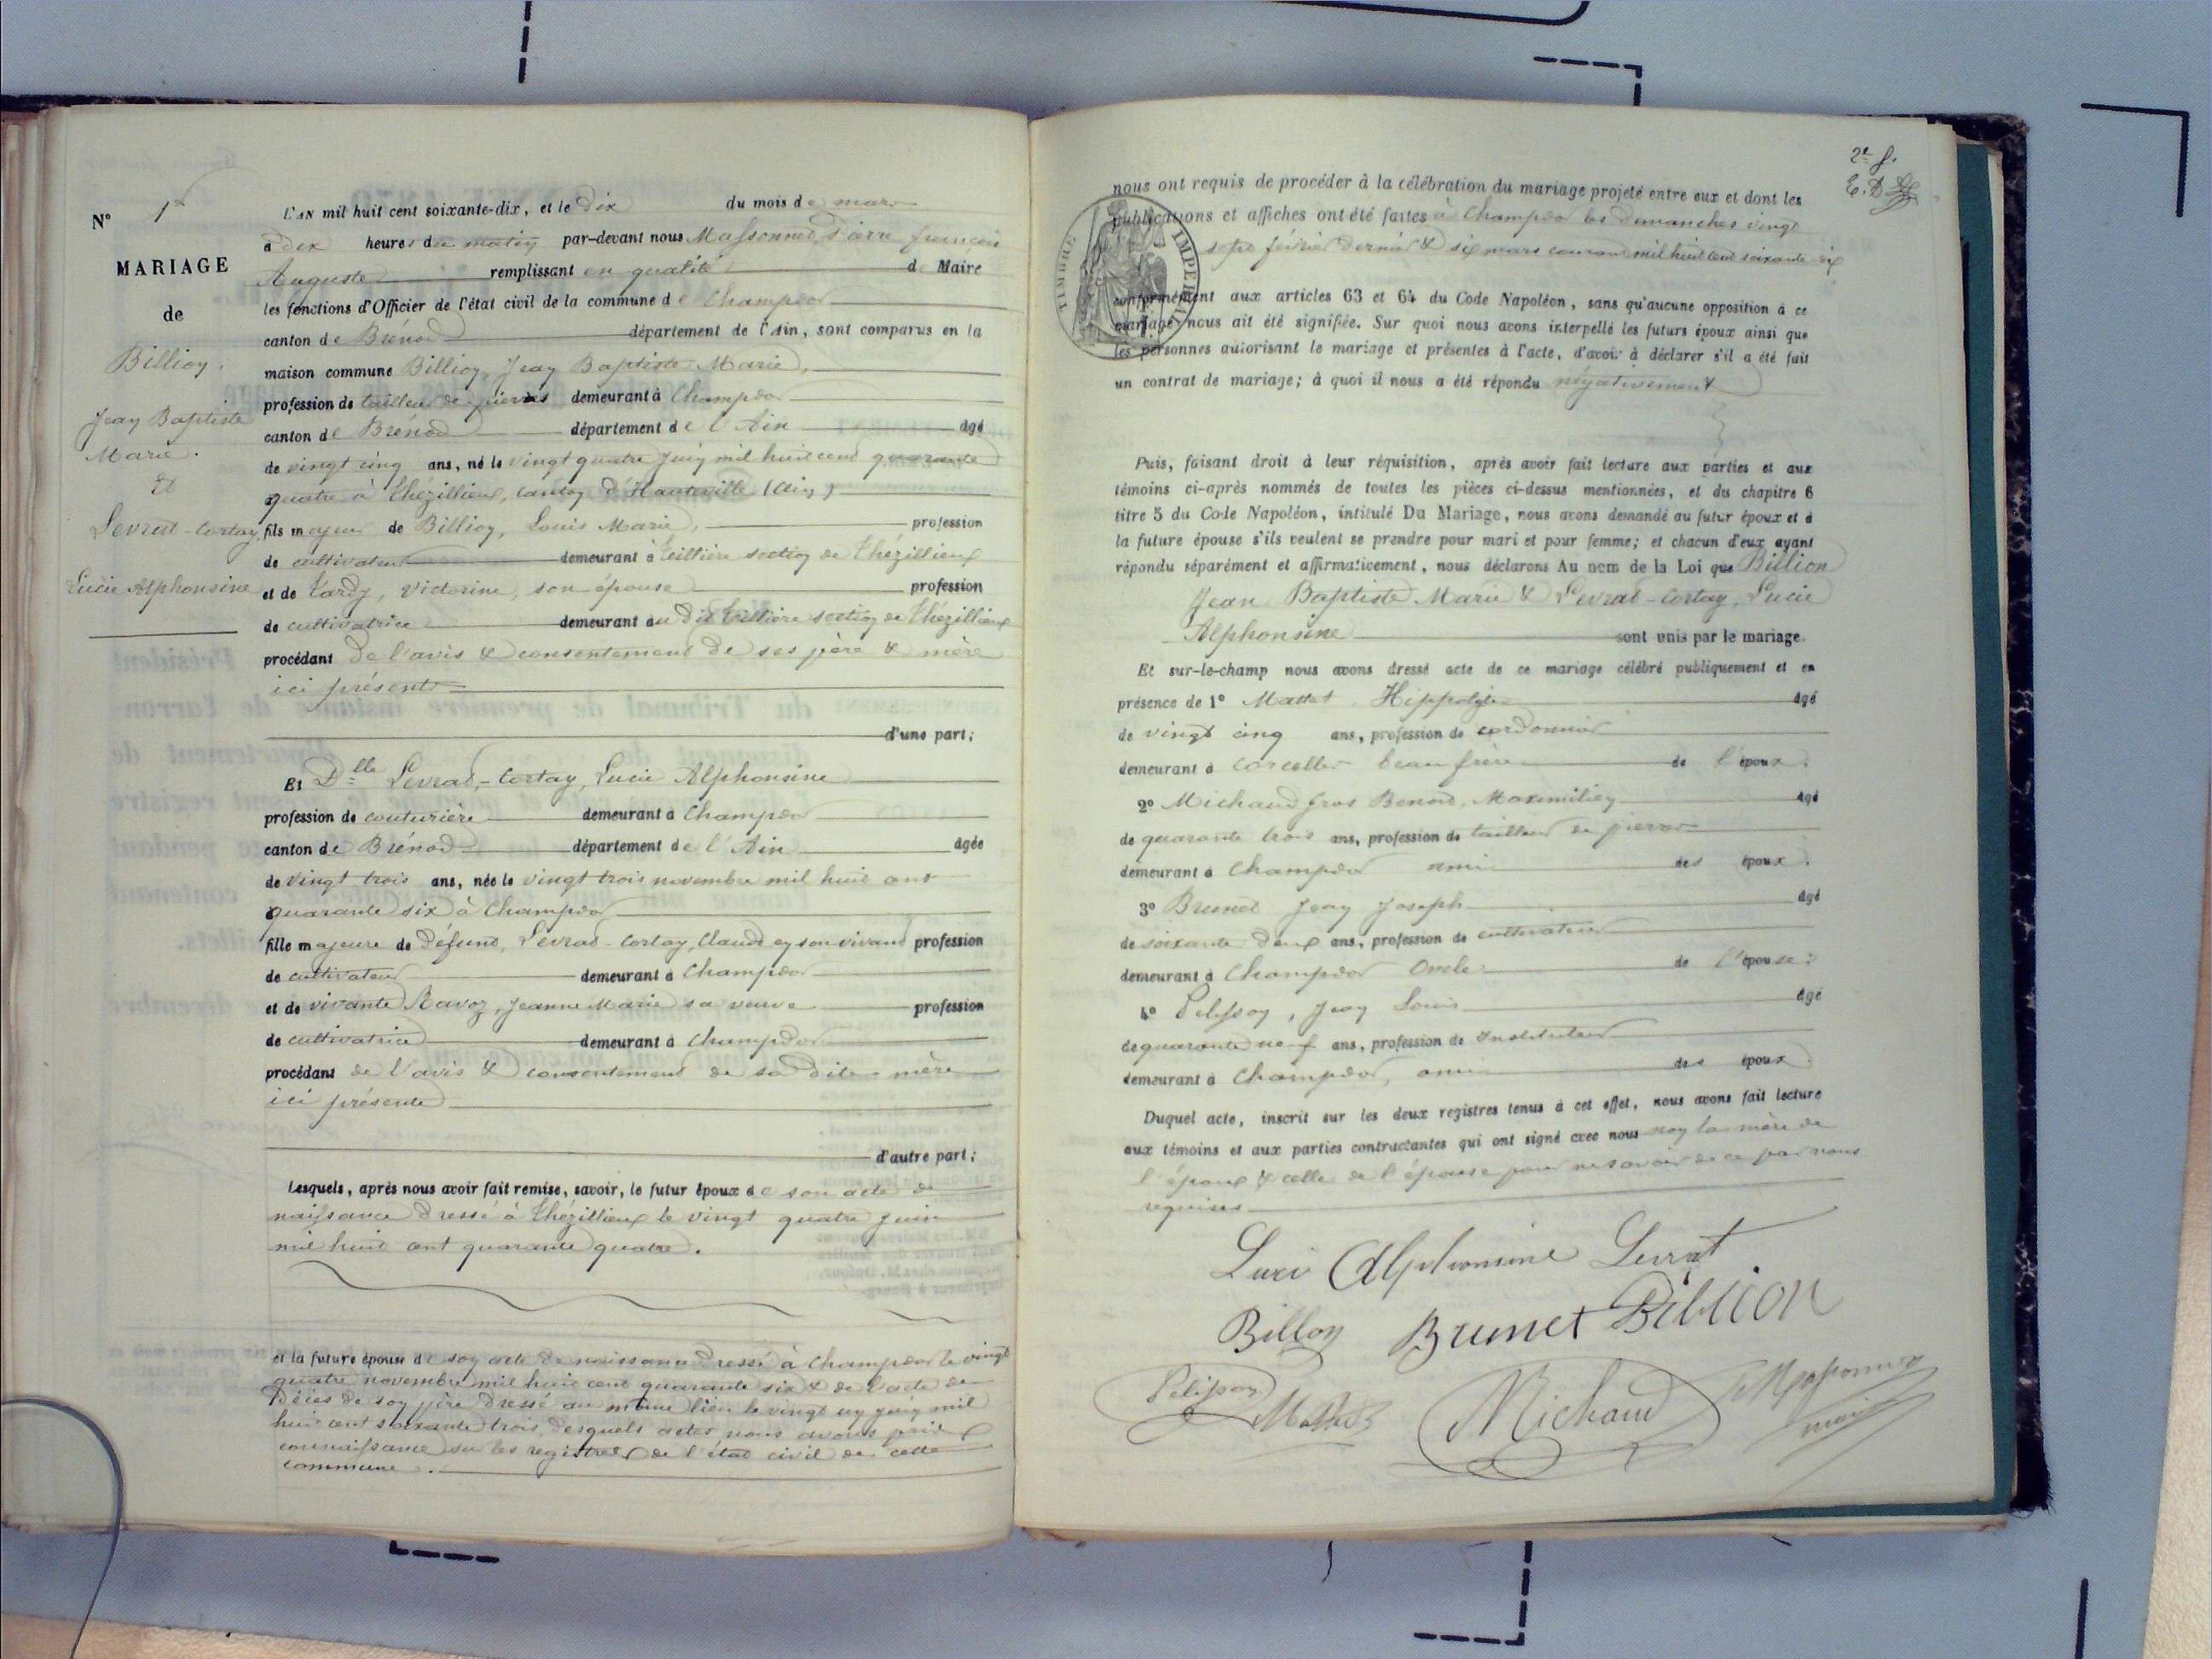 N° 1er
MARIAGE
de
Billion,
Jean Baptiste
Marie.
Et
Levrat-Cortay,
Lucie Alphonsine
L'AN mil huit cent soixante-dix, et le Dix du mois de mars
à dix heures du matin par-devant nous Massonnet, Pierre françois
Auguste remplissant en qualité de Maire
les fonctions d'Officier de l'état civil de la commune de Champdor
canton de Brénod département de l'Ain, sont comparus en la
maison commune Billion, Jean Baptiste Marie,
profession de tailleur de pierres demeurant à Champdor
canton de Brénod département de l'Ain âgé
de vingt cinq ans, né le vingt quatre Juin mil huit cent quarante
quatre à Thézillieux, canton d'Hauteville (Ain)
fils majeur de Billion, Louis Marie, profession
de cultivateur demeurant à Tillière section de Thézillieux
et de Tardy, Victorine, son épouse profession
de cultivatrice demeurant au dit Tillière section de Thézillieux
procédant de l'avis & consentement de ses père & mère
ici présents
d'une part;
Et Dlle Levrat-Cortay, Lucie Alphonsine
profession de couturière demeurant à Champdor
canton de Brénod département de l'Ain âgée
de vingt trois ans, née le vingt trois novembre mil huit cent
quarante six à Champdor
fille majeure de défunt, Levrat-Cortay, Claude en son vivant profession
de cultivateur demeurant à Champdor
et de vivante Ravoz, Jeanne Marie sa veuve profession
de cultivatrice demeurant à Champdor
procédant de l'avis & consentement de sa dite mère
ici présente
d'autre part;
Lesquels, après nous avoir fait remise, savoir, le futur époux de son acte de
naissance dressé à Thézillieux le vingt quatre Juin
mil huit cent quarante quatre.
et la future épouse de son acte de naissance dressé à Champdor le vingt
quatre novembre mil huit cent quarante six & de l'acte de
Décès de son père dressé au même lieu le vingt un juin mil
huit cent soixante trois, desquels actes nous avons pris
connaissance sur les registres de l'état civil de cette
commune.
2e f.
TIMBRE IMPERIAL
nous ont requis de procéder à la célébration du mariage projeté entre eux et dont les
publications et affiches ont été faites à Champdor les Dimanches vingt
sept février dernier & six mars courant mil huit cent soixante dix
conformément aux articles 63 et 64 du Code Napoléon, sans qu'aucune opposition à ce
mariage nous ait été signifiée. Sur quoi nous avons interpellé les futurs époux ainsi que
les personnes autorisant le mariage et présentes à l'acte, d'avoir à déclarer s'il a été fait
un contrat de mariage; à quoi il nous a été répondu négativement
Puis, faisant droit à leur réquisition, après avoir fait lecture aux parties et aux
témoins ci-après nommés de toutes les pièces ci-dessus mentionnées, et du chapitre 6
titre 5 du Code Napoléon, intitulé Du Mariage, nous avons demandé au futur époux et à
la future épouse s'ils veulent se prendre pour mari et pour femme; et chacun d'eux ayant
répondu séparément et affirmativement, nous déclarons Au nom de la Loi que Billion
Jean Baptiste Marie & Levrat-Cortay, Lucie
Alphonsine sont unis par le mariage.
Et sur-le-champ nous avons dressé acte de ce mariage célébré publiquement et en
présence de 1° Hippolyte âgé
de vingt cinq ans, profession de cordonnier
demeurant à Corcelles beau frère de l'époux.
2° Michaud Benoit, Maximilien âgé
de quarante trois ans, profession de tailleur de pierre
demeurant à Champdor ami des époux.
3° Brunet Jean Joseph âgé
de soixante deux ans, profession de cultivateur
demeurant à Champdor Oncle de l'épouse:
4° Pelisson, Jean Louis âgé
de quarante neuf ans, profession de Instituteur
demeurant à Champdor, ami des époux
Duquel acte, inscrit sur les deux registres tenus à cet effet, nous avons fait lecture
aux témoins et aux parties contractantes qui ont signé avec nous non la mère de
l'époux & celle de l'épouse pour ne savoir de ce par nous
requises
Luci Alphonsine Levrat
Billon Brunet Billion
Pelisson Michaud Massonnet
maire